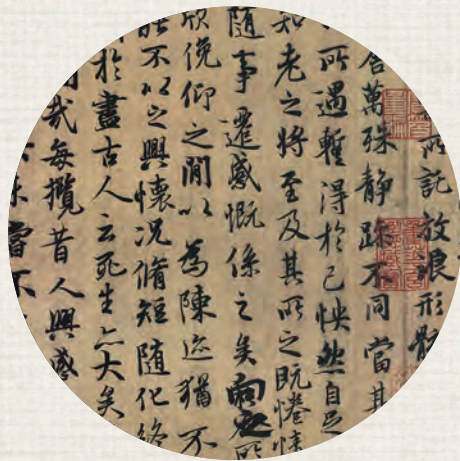 所託放浪形骸
舍萬殊静躁不同當其
所遇暫得於己怏然自足
知老之將至及其所之既惓情
隨事遷感慨係之矣向之所
欣俛仰之間以為陳迹猶不
能不以之興懷況脩短隨化終
於盡古人云死生亦大矣
哉每攬昔人興感
未嘗不